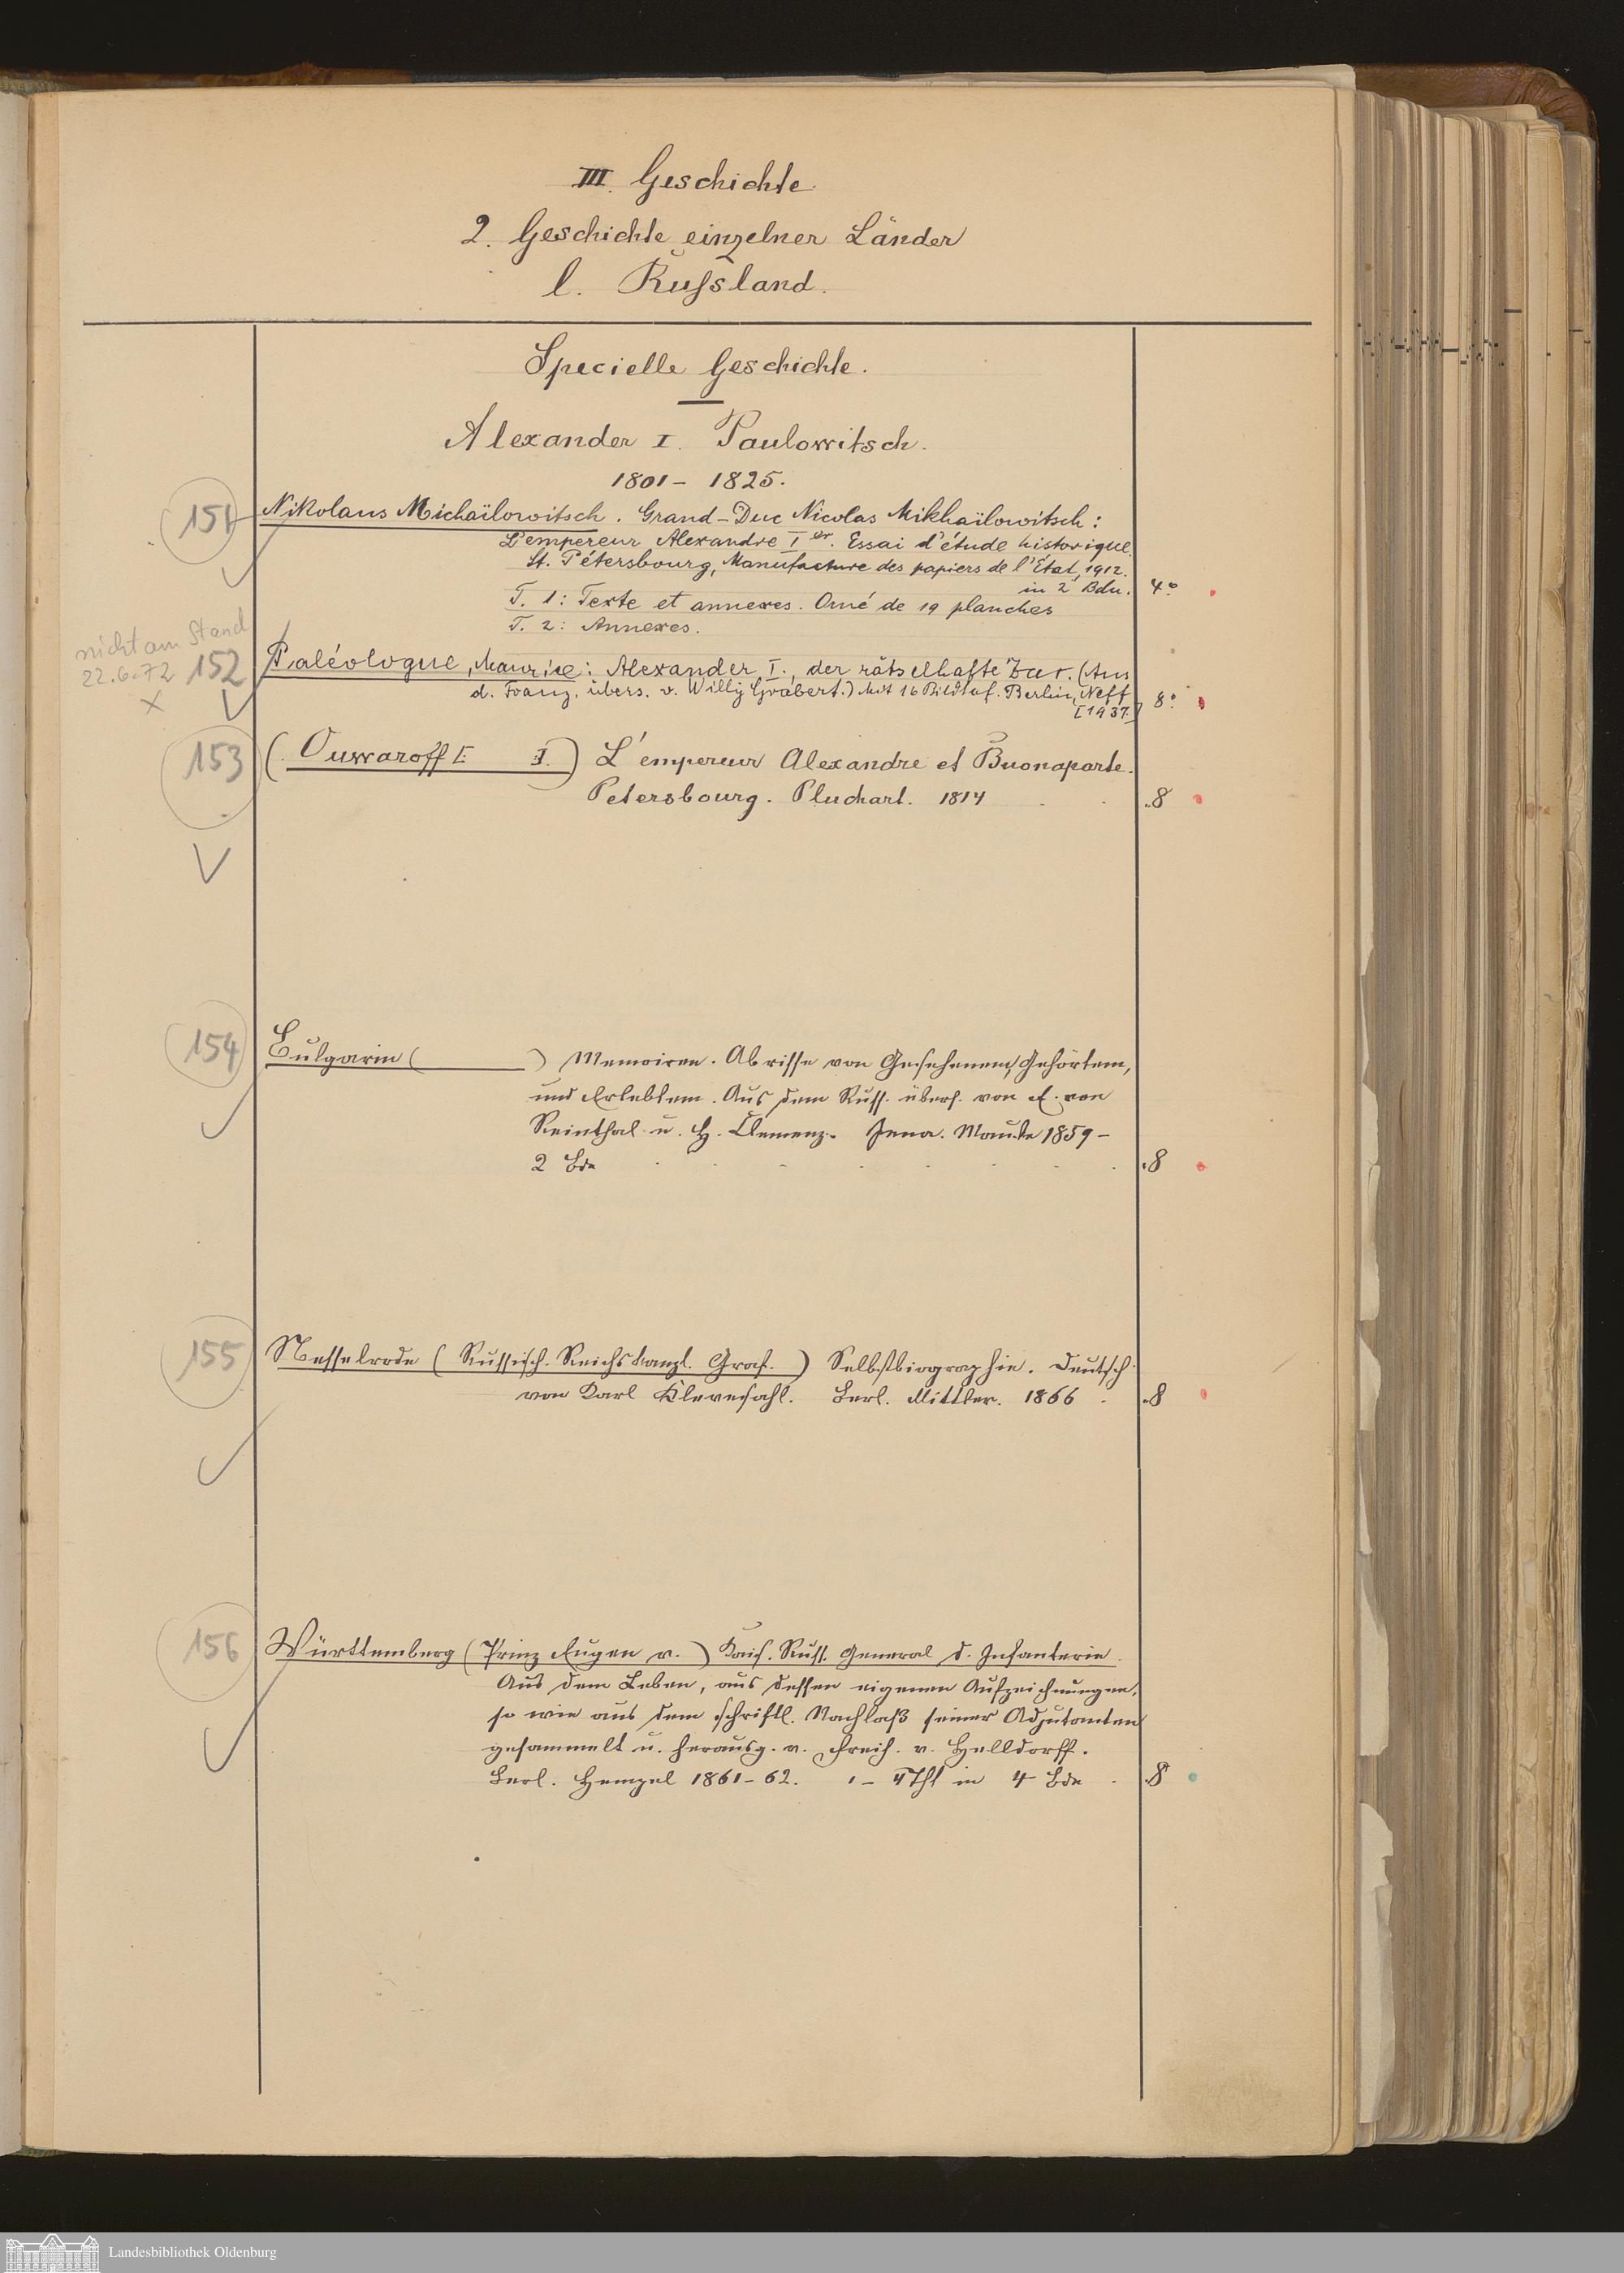 III. Geschichte.
2. Geschichte einzelner Länder
l. Russland.
Specielle Geschichte.
Alexander I. Paulowitsch.
1801 - 1825.
151 Nikolaus Michaïlowitsch. Grand-Duc Nicolas Mikhaïlowitsch:
L'empereur Alexandre Ier. Essai d'étude historique.
St. Pétersbourg, Manufacture des papiers de l'État, 1912.
in 2 Bdn. 4°
T. 1: Texte et annexes. Orné de 19 planches
T. 2: Annexes.
nicht am Stand
22.6.72 152 Paléologue, Maurice: Alexander I., der rätselhafte Zar. (Aus
d. Franz. übers. v. Willy Grabert.) Mit 16 Bildtaf. Berlin, Neff
[1937.] 8°
153 (Ouwaroff [ ].) L'empereur Alexandre et Buonaparte.
Petersbourg. Pluchart. 1814 . . .8
154 Bulgarin ( ) Memoiren. Abrisse von Gesehenem, Gehörtem,
und Erlebtem. Aus dem Russ. übers. von E. von
Reinthal u. H. Clemenz. Jena. Mauke 1859 -
2 Bde .8
155 Nesselrode (Russisch. Reichskanzl. Graf.) Selbstbiographie. Deutsch
von Karl Klevesahl. Berl. Mittler. 1866 . .8
156 Württemberg (Prinz Eugen v.) Kais. Russ. General d. Infanterie.
Aus dem Leben, aus dessen eigenen Aufzeichnungen,
so wie aus dem schriftl. Nachlaß seiner Adjutanten
gesammelt u. herausg. v. Freih. v. Helldorff.
Berl. Hempel 1861-62. 1 - 4 Thl in 4 Bde . .8
Landesbibliothek Oldenburg